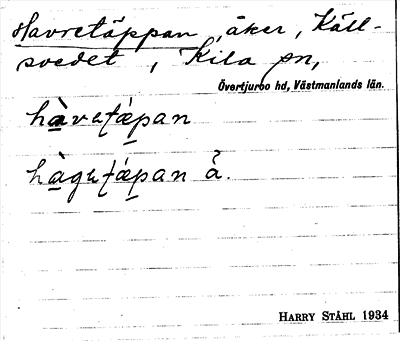 Havretäppan, åker, Käll-
svedet, Kila sn,
Övertjurbo hd, Västmanlands län.
hàvatǽpan
hàgatǽpan å̀.
HARRY STÅHL 1934